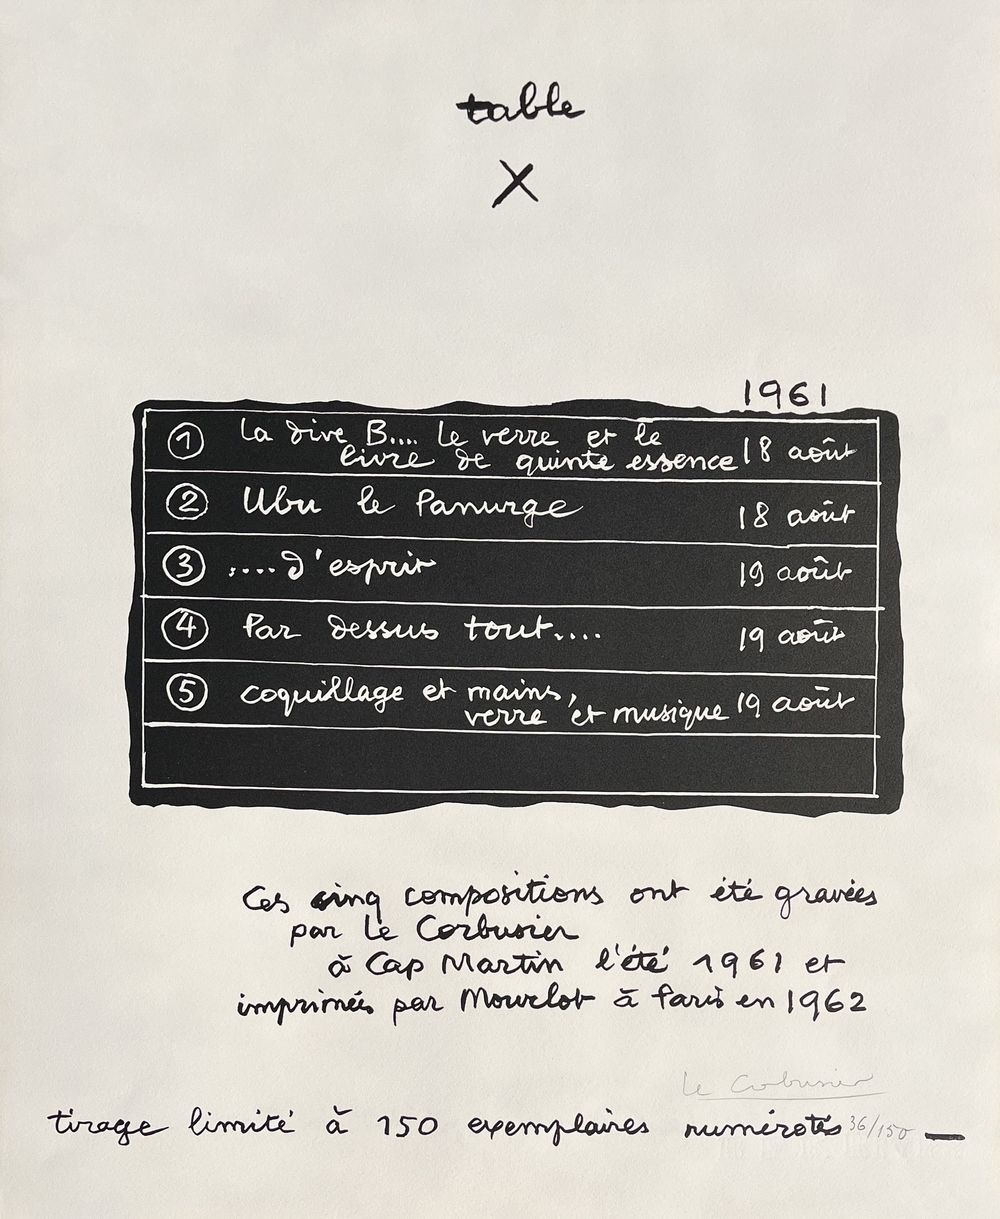 table
X
1961
1 La dive B.... Le verre et le
livre de quinte essence 18 août
2 Ubu le Panurge 18 août
3 .... d'esprit 19 août
4 Par dessus tout.... 19 août
5 coquillage et mains,
verre et musique 19 août
Ces cinq compositions ont été gravées
par Le Corbusier
à Cap Martin l'été 1961 et
imprimées par Mourlot à Paris en 1962
Le Corbusier
tirage limité à 150 exemplaires numérotés 36/150